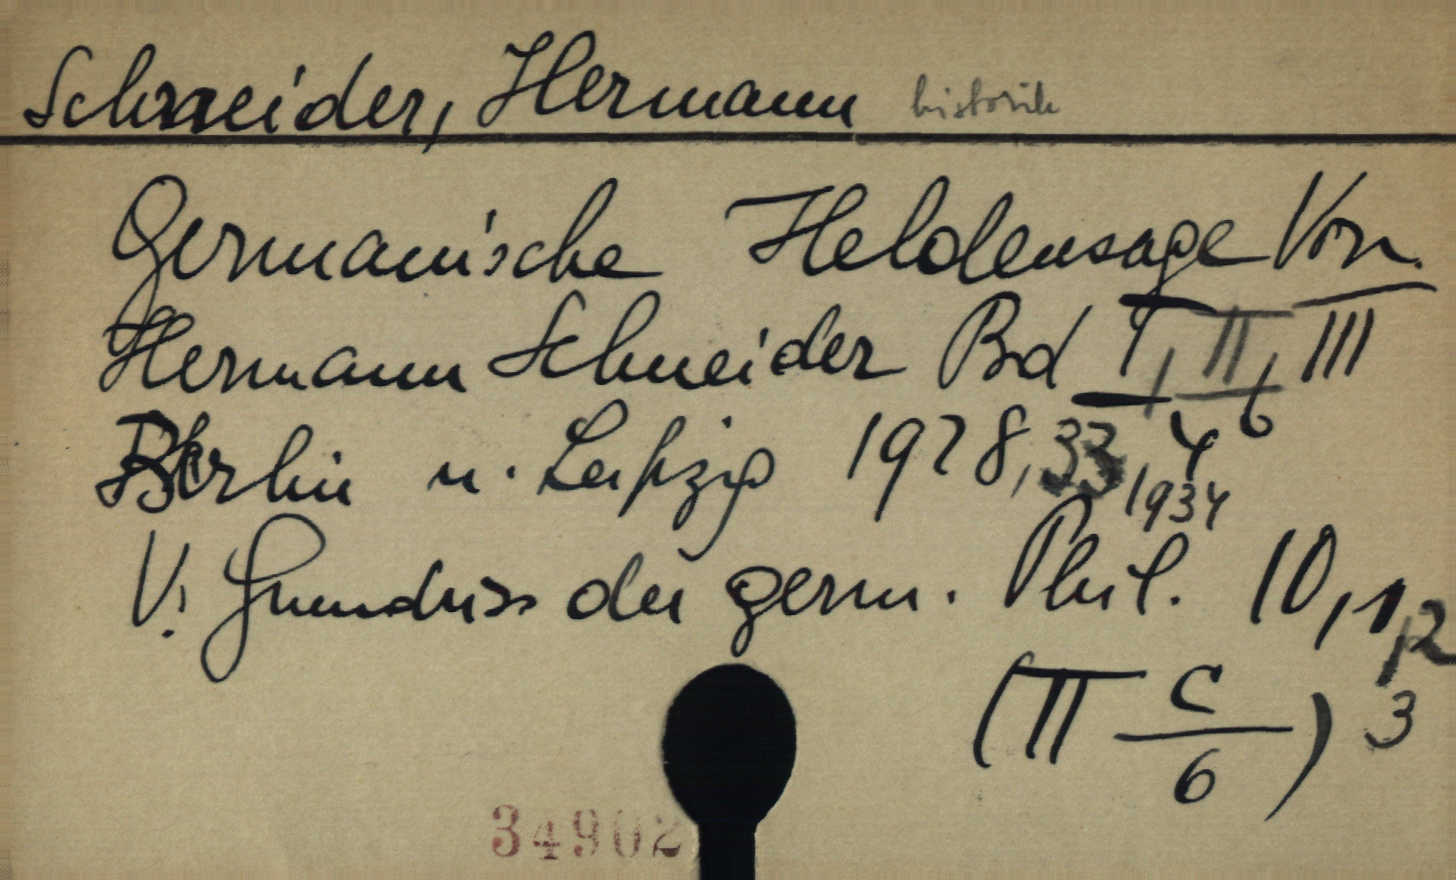 Schneider, Hermann historik
Germanische Heldensage Von
Hermann Schneider Bd I, II, III
Berlin u. Leipzig 1928, 33, 1934
V. Grundriss der germ. Phil. 10, 1, 2
3
(II C/6)
34902